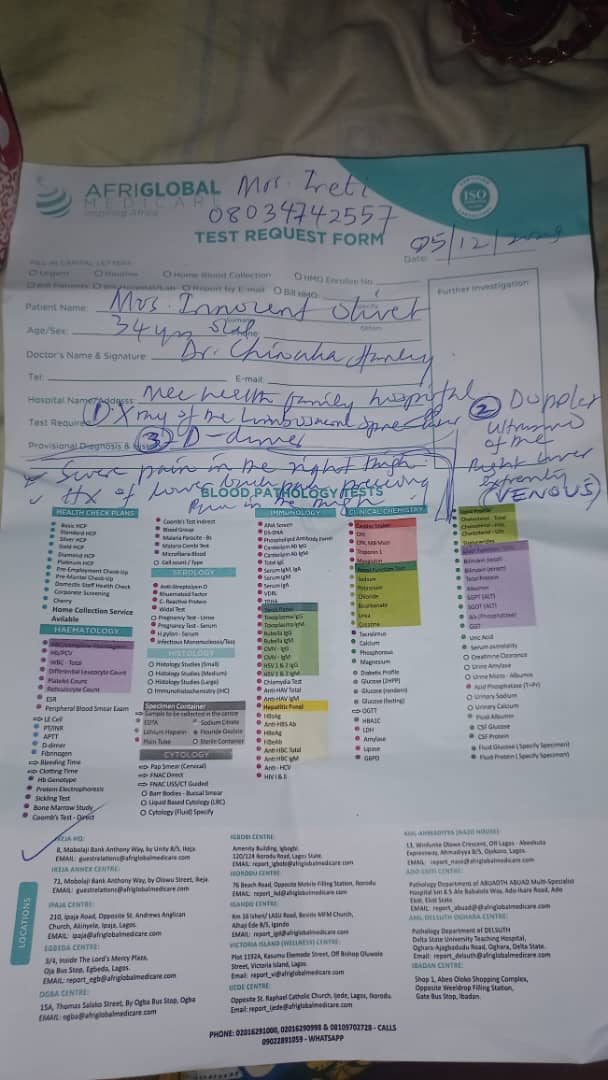 AFRIGLOBAL Mrs. Ireti
MEDICARE
Inspiring Africa
08034742557
ISO
TEST REQUEST FORM
Date: 05/12/
FILL IN CAPITAL LETTERS
Urgent Routine Home Blood Collection HMO Enrollee No
Report by E-mail Bill HMO
Further Investigation
Patient Name: Mrs. Innocent Olivet
Age/Sex: 34yrs
Doctor's Name & Signature: Dr. Chinaka
Tel: E-mail:
Hospital Name/Address: family hospital
Test Required ① Xray of the Lumbosacral Spine
② Doppler
Ultrasound
of the
Right lower
extremity
(VENOUS)
Provisional Diagnosis & ③ D-dimer
Severe pain in the right thigh
Hx of lower back pain
Pain in the
BLOOD PATHOLOGY TESTS
HEALTH CHECK PLANS
Basic HCP
Standard HCP
Silver HCP
Gold HCP
Diamond HCP
Platinum HCP
Pre-Employment Check-Up
Pre-Marital Check-Up
Domestic Staff Health Check
Corporate Screening
Cherry
Home Collection Service
Avilable
HAEMATOLOGY
Hb/PCV
WBC - Total
Differential Leucocyte Count
Platelet Count
Reticulocyte Count
ESR
Peripheral Blood Smear Exam
LE Cell
PT/INR
APTT
D-dimer
Fibrinogen
Bleeding Time
Clotting Time
Hb Genotype
Protein Electrophoresis
Sickling Test
Bone Marrow Study
Coomb's Test - Direct
Coomb's Test Indirect
Blood Group
Malaria Parasite - Bs
Malaria Combi Test
Microfilaria Blood
Cell count / Type
SEROLOGY
Anti-Streptolysin O
Rheumatoid Factor
C. Reactive Protein
Widal Test
Pregnancy Test - Urine
Pregnancy Test - Serum
H.pylori - Serum
Infectious Mononucleosis/Test
HISTOLOGY
Histology Studies (Small)
Histology Studies (Medium)
Histology Studies (Large)
Immunohistochemistry (IHC)
Specimen Container
Sample to be collected in the centre
EDTA Sodium Citrate
Lithium Heparin Flouride Oxalate
Plain Tube Sterile Container
CYTOLOGY
Pap Smear (Cervical)
FNAC Direct
FNAC USS/CT Guided
Barr Bodies - Buccal Smear
Liquid Based Cytology (LBC)
Cytology (Fluid) Specify
IMMUNOLOGY
ANA Screen
Ds-DNA
Phospholipid Antibody panel
Cardiolipin AB IgG
Cardiolipin AB IgM
Total IgE
Serum IgM, IgA
Serum IgM
Serum IgA
VDRL
TPHA
Toxoplasma IgG
Toxoplasma IgM
Rubella IgG
Rubella IgM
CMV - IgG
CMV - IgM
HSV 1 & 2 IgG
HSV 1 & 2 IgM
Chlamydia Test
Anti-HAV Total
Anti-HAV IgM
Hepatitis Panel
HBsAg
Anti-HBS Ab
HBeAg
HBeAb
Anti HBC Total
Anti HBC IgM
Anti - HCV
HIV I & II
CLINICAL CHEMISTRY
CPK
CPK, MB Mass
Troponin 1
Myoglobin
Sodium
Potassium
Chloride
Bicarbonate
Urea
Creatine
Calcium
Phosphorous
Magnesium
Diabetic Profile
Glucose (2HPP)
Glucose (random)
Glucose (fasting)
OGTT
HBA1C
LDH
Amylase
Lipase
G6PD
Cholesterol - Total
Cholesterol - HDL
Cholesterol - LDL
Triglycerides
Bilirubin (total)
Bilirubin (direct)
Total Protein
Albumin
SGPT (ALT)
SGOT (AST)
Alk (Phosphatase)
GGT
Uric Acid
Serum osmolality
Creatinine Clearance
Urine Amylase
Urine Micro - Albumin
Acid Phosphatase (T+Pr)
Urinary Sodium
Urinary Calcium
Fluid Albumin
CSF Glucose
CSF Protein
Fluid Glucose (Specify Specimen)
Fluid Protein (Specify Specimen)
LOCATIONS
IKEJA HQ:
8, Mobolaji Bank Anthony Way, by Unity B/S, Ikeja.
EMAIL: guestrelations@afriglobalmedicare.com
IKEJA ANNEX CENTRE:
71, Mobolaji Bank Anthony Way, by Olowu Street, Ikeja.
EMAIL: guestrelations@afriglobalmedicare.com
IPAJA CENTRE:
210, Ipaja Road, Opposite St. Andrews Anglican
Church, Akinyele, Ipaja, Lagos.
EMAIL: ipaja@afriglobalmedicare.com
EGBEDA CENTRE:
3/4, Inside The Lord's Mercy Plaza,
Oja Bus Stop, Egbeda, Lagos.
EMAIL: report_egb@afriglobalmedicare.com
OGBA CENTRE:
15A, Thomas Salako Street, By Ogba Bus Stop, Ogba
EMAIL: ogba@afriglobalmedicare.com
IGBOBI CENTRE:
Amenity Building, Igbogbi.
120/124 Ikorodu Road, Lagos State.
EMAIL: report_igbobi@afriglobalmedicare.com
IKORODU CENTRE:
76 Beach Road, Opposite Mobile Filling Station, Ikorodu
EMAIL: report_ikd@afriglobalmedicare.com
IGANDO CENTRE:
Km 16 Isheri/ LASU Road, Beside MFM Church,
Afnaz Ede B/S, Igando
EMAIL: report_igd@afriglobalmedicare.com
VICTORIA ISLAND (WELLNESS) CENTRE:
Plot 1192A, Kasumu Ekemode Street, Off Bishop Oluwole
Street, Victoria Island, Lagos.
Email: report_vi@afriglobalmedicare.com
IJEDE CENTRE:
Opposite St. Raphael Catholic Church, Ijede, Lagos, Ikorodu.
Email: report_ijede@afriglobalmedicare.com
AHL-AHMADIYYA (RAZO HOUSE):
13, Winfunke Olowu Crescent, Off Lagos - Abeokuta
Expressway, Ahmadiyya B/S, Ojokoro, Lagos.
EMAIL: report_nazo@afriglobalmedicare.com
ADO EKITI CENTRE:
Pathology Department of ABUAD
Hospital km 8.5 Afe Babalola Way, Ado-Ikare Road, Ado
Ekiti, Ekiti State
EMAIL: report_abuad@afriglobalmedicare.com
AHL DELSUTH OGHARA CENTRE:
Pathology Department of DELSUTH
Delta State University Teaching Hospital,
Oghara, Delta State.
Email: report_delsuth@afriglobalmedicare.com
IBADAN CENTRE:
Shop 1, Abeo Oloko Shopping Complex,
Opposite Weeldrop Filling Station,
Gate Bus Stop, Ibadan.
PHONE: 02016291000, 02016290998 & 08109702728 - CALLS
09022891059 - WHATSAPP